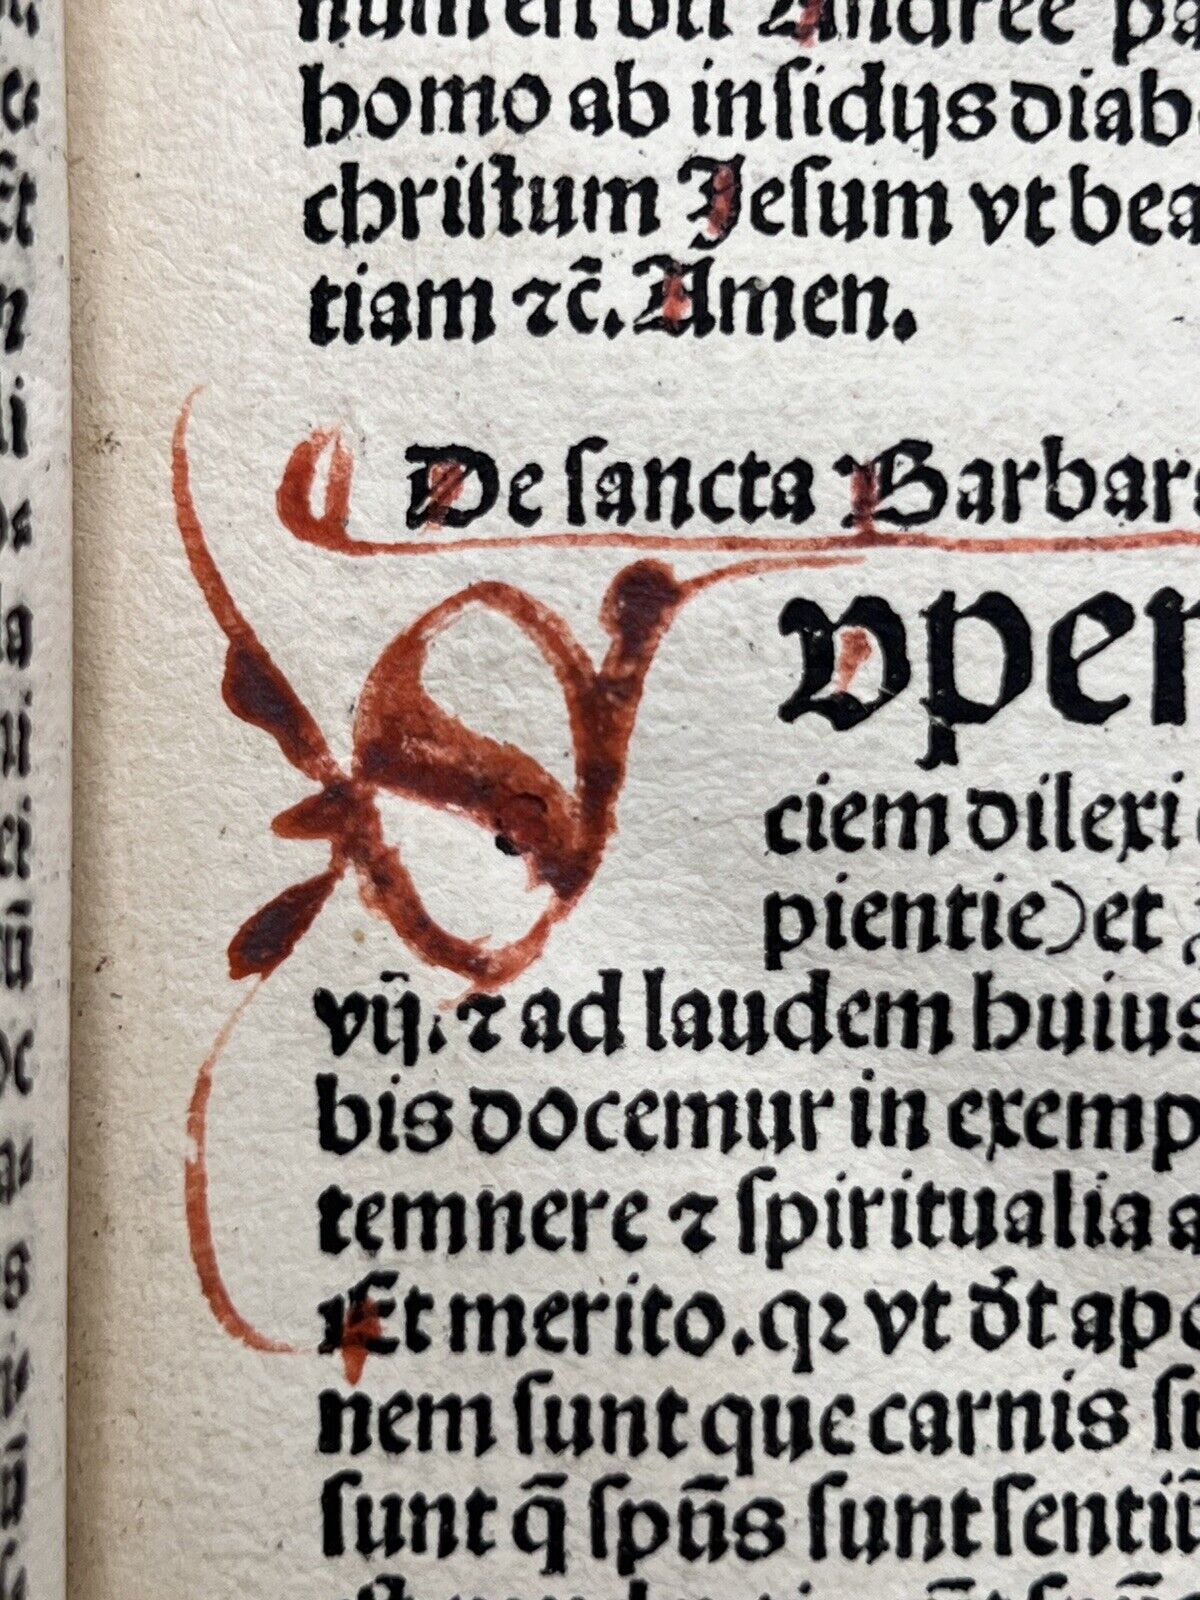 homo ab inſidijs diab
chriſtum Jeſum vt bea
tiam ⁊c̄. Amen.
De ſancta Barbar
S vper
ciem dilexi
pientie) et
vij̄. ⁊ ad laudem huius
bis docemur in exemp
temnere ⁊ ſpiritualia a
Et merito. qꝛ vt dt̄ apo
nem ſunt que carnis ſu
ſunt q̄ ſpūs ſunt ſentiū